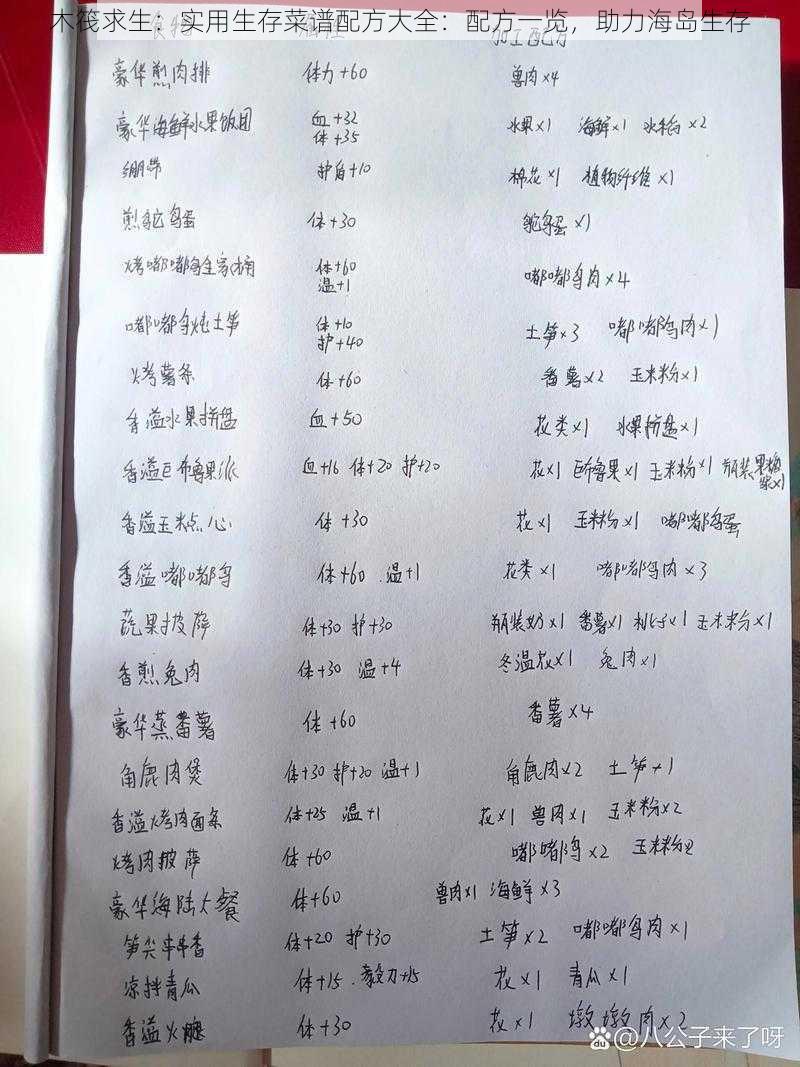 木筏求生：实用生存菜谱配方大全：配方一览，助力海岛生存
加工配方
豪华煎肉排 体力+60 兽肉×4
豪华海鲜水果饭团 血+32 体+35 水果×1 海鲜×1 水稻×2
绷带 护盾+10 棉花×1 植物纤维×1
煎鸵鸟蛋 体+30 鸵鸟蛋×1
烤嘟嘟鸟全家桶 体+60 温+1 嘟嘟鸟肉×4
嘟嘟鸟炖土笋 体+10 护+40 土笋×3 嘟嘟鸟肉×1
火考薯条 体+60 番薯×2 玉米粉×1
香溢水果拼盘 血+50 花类×1 水果拼盘×1
香溢巨布鲁果派 血+16 体+20 护+20 花×1 巨布鲁果×1 玉米粉×1 瓶装果酱×1
香溢玉米点心 体+30 花×1 玉米粉×1 嘟嘟鸟蛋
香溢嘟嘟鸟 体+60 .温+1 花类×1 嘟嘟鸟肉×3
蔬果披萨 体+30 护+30 瓶装奶×1 番薯×1 桃子×1 玉米粉×1
香煎兔肉 体+30 温+4 冬温花×1 兔肉×1
豪华蒸番薯 体+60 番薯×4
角鹿肉煲 体+30 护+20 温+1 角鹿肉×2 土笋×1
香溢烤肉面条 体+25 温+1 花×1 兽肉×1 玉米粉×2
烤肉披萨 体+60 嘟嘟鸟×2 玉米粉
豪华海陆大餐 体+60 兽肉×1 海鲜×3
笋尖串串香 体+20 护+30 土笋×2 嘟嘟鸟肉×1
凉拌青瓜 体+15 .毅力+15 花×1 青瓜×1
香溢火腿 体+30 花×1 墩墩肉×2
Bai du @八公子来了呀